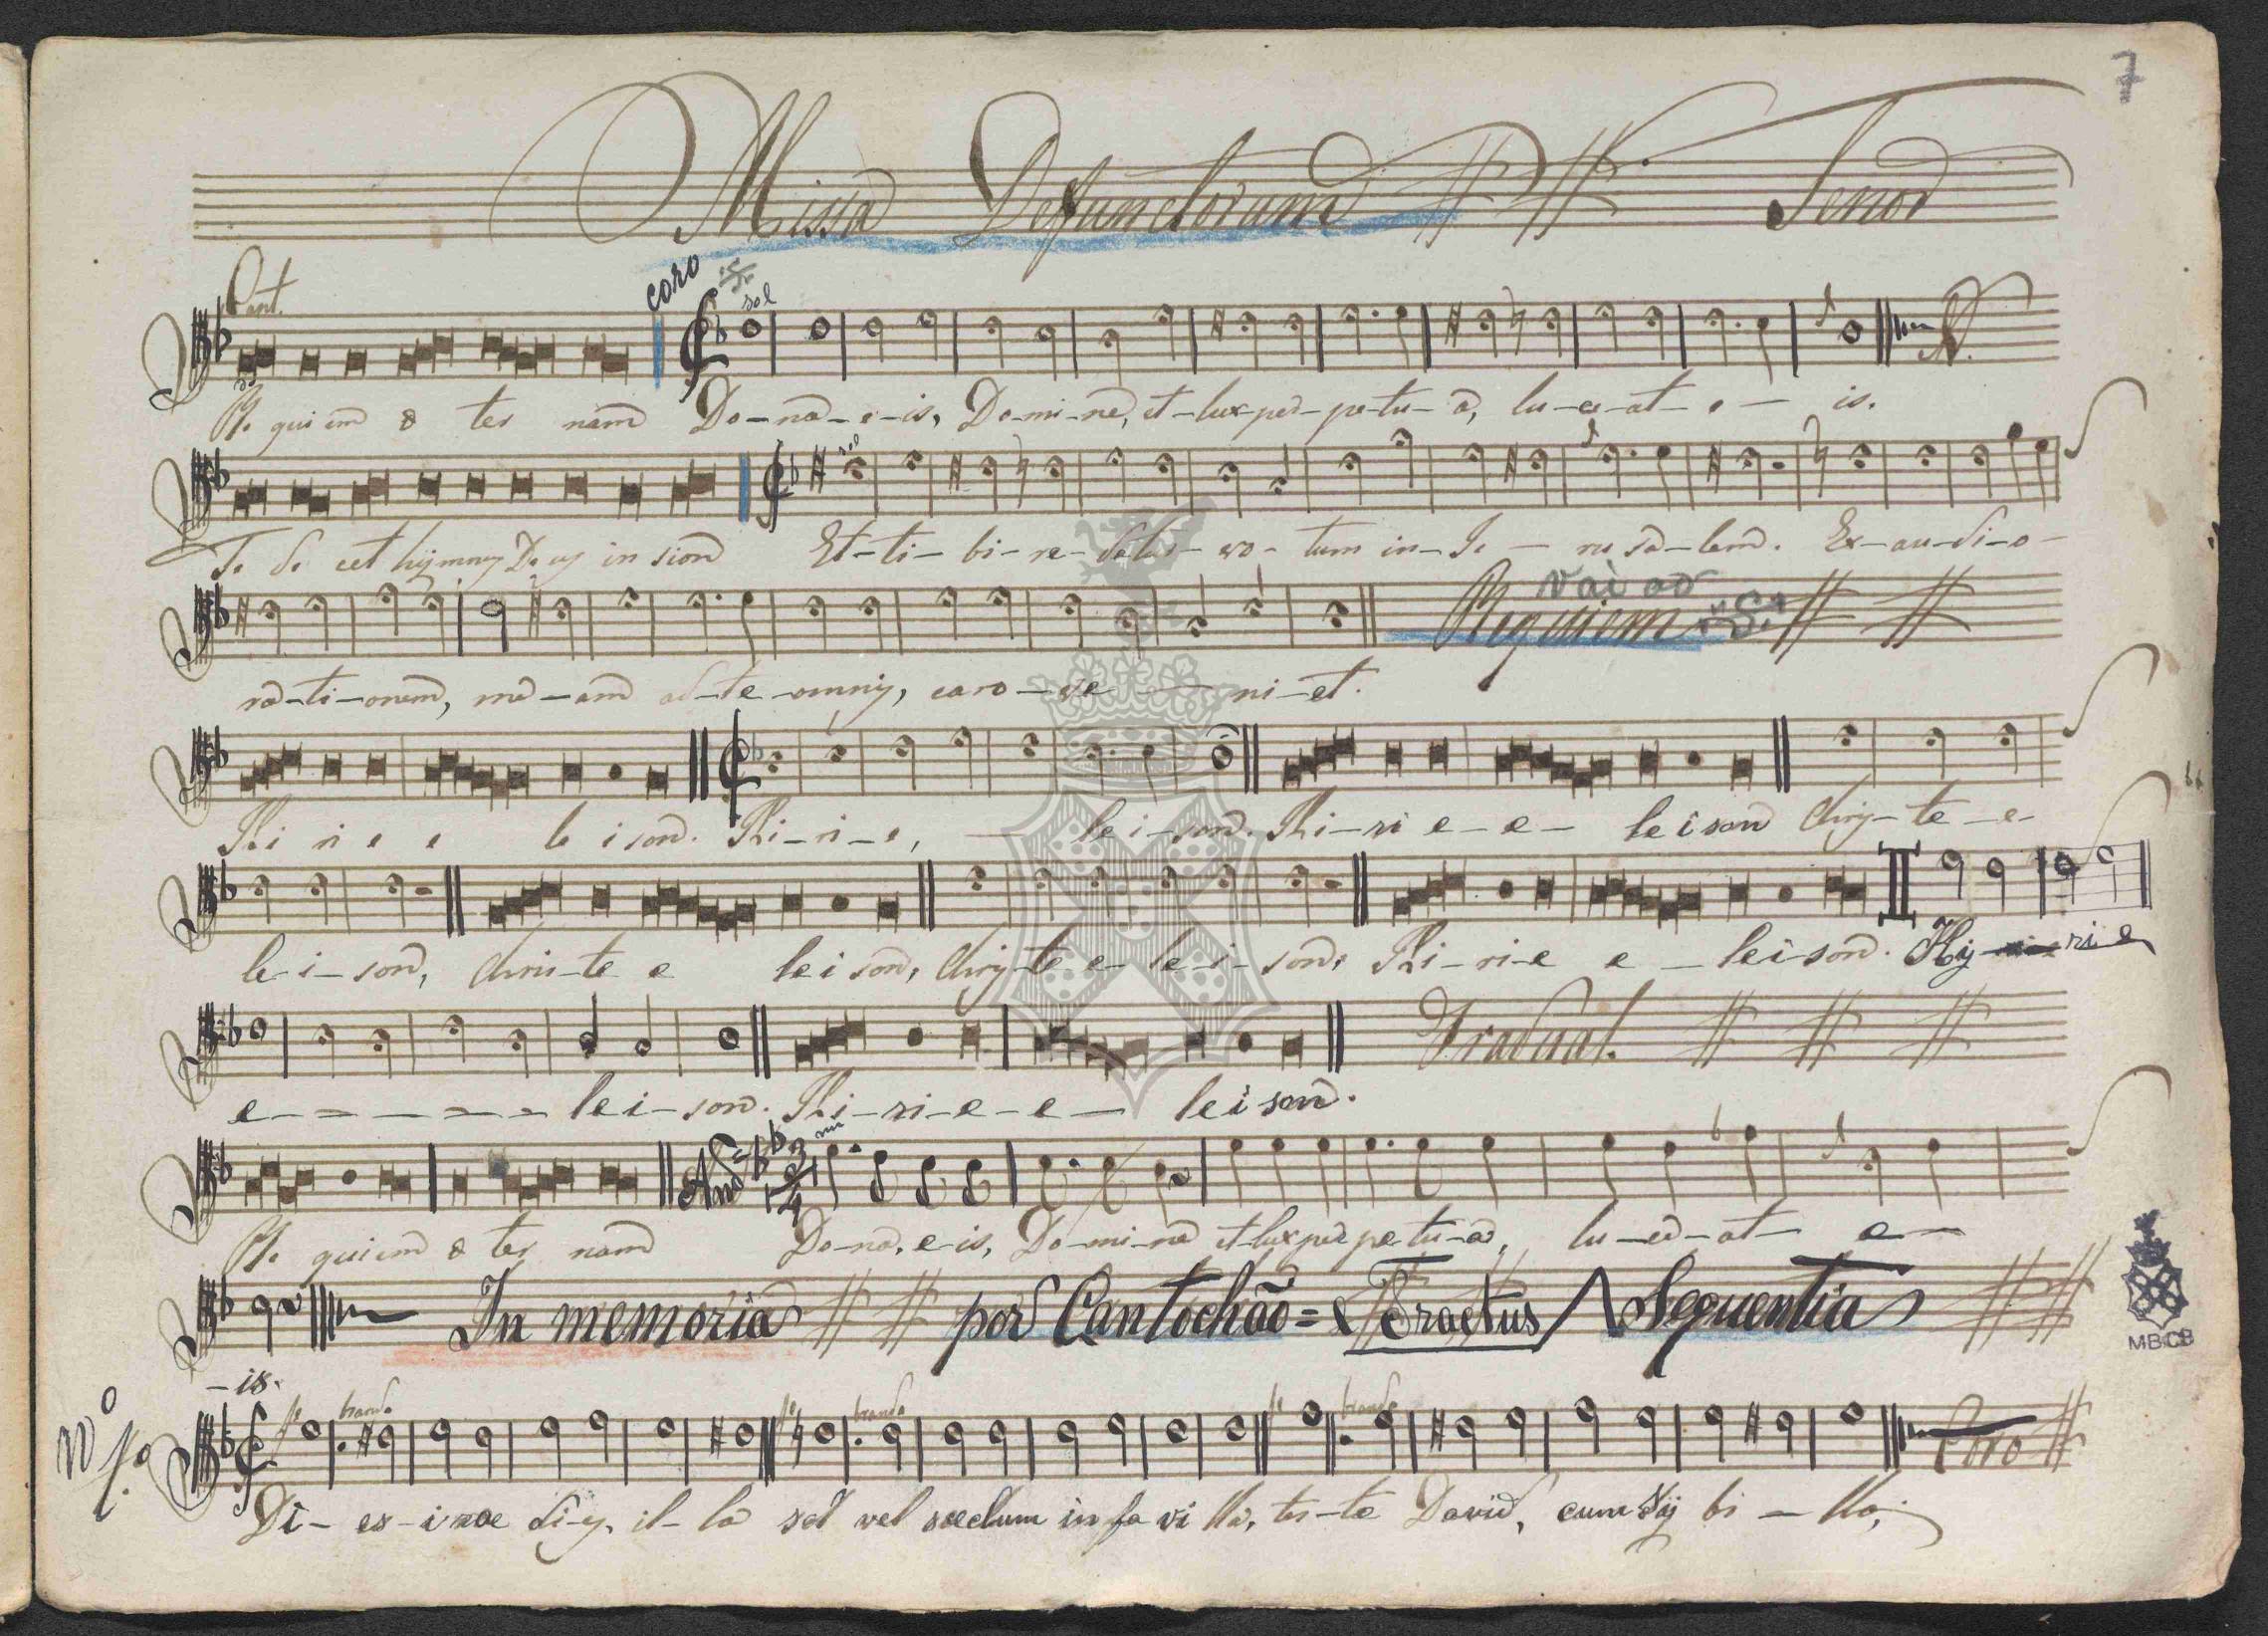 7
Missa Defunctorum Tenor
Cant. coro sol
Re qui em æ ter nam Do-na-e-is, Do-mi-ne, et-lux-per-pe-tu-a, lu-ce-at-e- is.
Te de cet hymnus Deus in sion Et-ti-bi-re-detur-vo-tum in-Je-ru sa-lem. Ex-au-di-o-
vai ao
Requiem
ra-ti-onem, me-am ad-te-omnis, caro-ve-ni-et.
Ki ri e e le i son. Ki-ri-e, le-i-son. Ki-ri e-e- le i son Chris-te-e-
le-i-son, Chris-te e lei son, Chris-te e-le-i-son, Ki-ri-e e-lei-son. Ky-ri-e
Gradual.
e- lei-son. Ki-ri-e-e- lei son.
And.e 3/4 mi
Re quiem æ ter nam Do-na, e-is, Do-mi-ne et-lux per pe-tu-a, lu-ce-at e-
In memoria por Cantochão = Tractus Sequentia
MBCB
-is.
Nº 1.º
fe brando fe brando fe brando Coro
Di-es-iræ di-es, il-la sol vel sæclum in fa vi lla, tes-te David, cum Sy bi-lla,